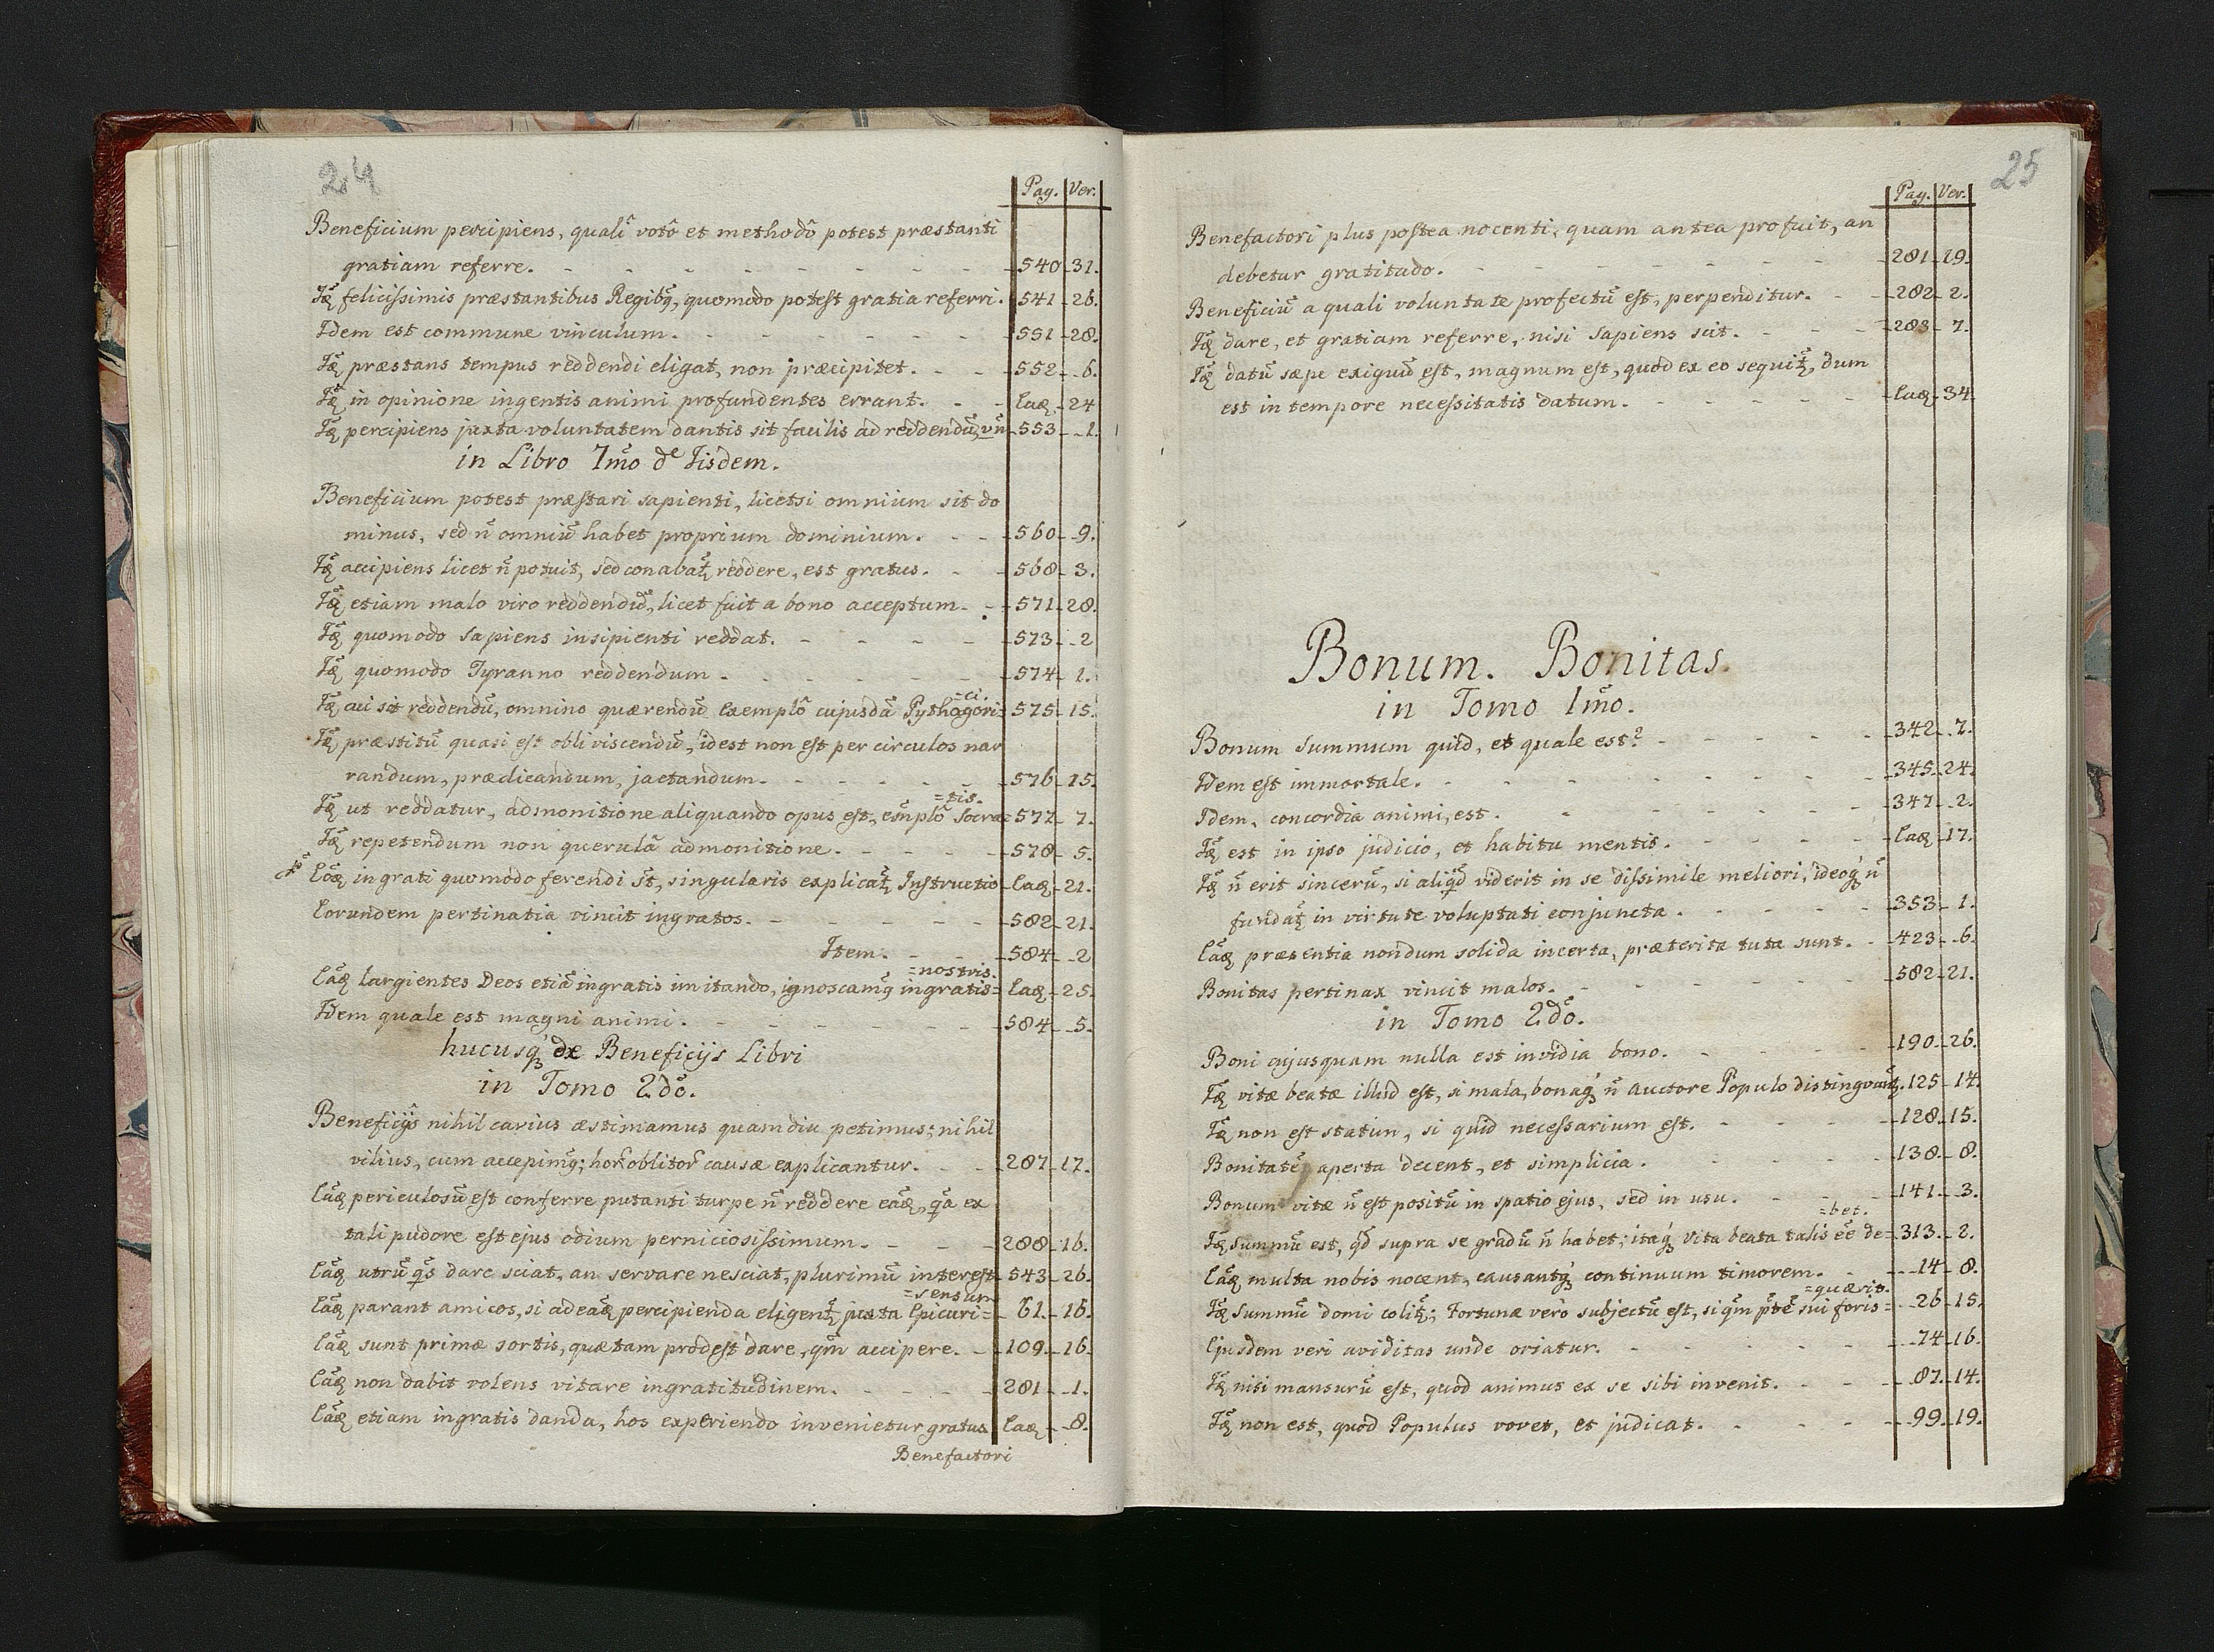 24
Pag. Ver.
Beneficium percipiens, quali votô et methodô potest præstanti
gratiam referre. 540 31.
Idē felicissimis præstantibus Regibq, quomodo potest gratia referri. 541 26.
Idem est commune vinculum. 551 28.
præstans tempus reddendi eligat, non præcipitet. 552 6.
in opinione ingentis animi profundentes errant. 24
percipiens juxta voluntatem dantis sit facilis ad reddendū, 553 1.
in Libro 7mo de Iisdem.
Beneficium potest præstari sapienti, licetsi omnium sit do
minus, sed n̄ omniū habet proprium dominium. 560 9.
accipiens licet n̄ potuit, sed conabat reddere, est gratus. 568 3.
etiam malo viro reddendū, licet fuit a bono acceptum. 571 28.
quomodo sapiens insipienti reddat. 573 2
quomodo Tyranno reddendum. 574 1.
=ci.
cui sit reddendū, omnino quærendū exemplô cujusdā Pythagori= 575 15.
præstitū quasi est obliviscendū, idest non est per circulos nar
randum, prædicandum, jactandum. 576 15.
=tis.
ut reddatur, admonitione aliquando opus est, Socra= 577 7.
repetendum non querulâ admonitione. 578 5.
ingrati quomodo ferendi st, singularis explicat Instructio 21.
Eorundem pertinatia vincit ingratos. 582 21.
Item. 584 2
=nostris.
largientes Deos etiā ingratis imitando, ignoscamq ingratis= 25.
Idem quale est magni animi. 584 5.
hucusq de Beneficijs Libri
in Tomo 2dō.
Beneficijs nihil carius æstimamus quamdiu petimus; nihil
vilius, cum accepimq; oblitor causæ explicantur. 287 17.
periculosū est conferre putanti turpe n̄ reddere qa ex
tali pudore est ejus odium perniciosissimum. 288 16.
utrū qs dare sciat, an servare nesciat, plurimū interest 543 26.
=sensum
parant amicos, si ad percipienda eligent juxta Epicuri= 61. 16.
sunt primæ sortis, quætam prodest dare, qm accipere. 109. 16.
non dabit volens vitare ingratitudinem. 281 1.
etiam ingratis danda, hos experiendo invenietur gratus 8.
Benefactori
25
Pag. Ver.
Benefactori plus postea nocenti, quam antea profuit, an
debetur gratitudo. 281 19.
Beneficiū a quali voluntate profectū est, perpenditur. 282 2.
dare, et gratiam referre, nisi sapiens scit. 283 7.
datū sæpe exiguū est, magnum est, quod ex eo sequit, dum
est in tempore necessitatis datum. 34
Bonum. Bonitas.
in Tomo 1mo.
Bonum summum quid, et quale est? 342 7.
Idem est immortale. 345 24.
Idem, concordia animi, est. 347 2.
est in ipso judicio, et habitu mentis. 17.
n̄ erit sincerū, si aliqd viderit in se dissimile meliori, ideoq n̄
fundat in virtute voluptati conjuncta. 353 1.
præsentia nondum solida incerta, præterita tuta sunt. 423 6.
Bonitas pertinax vincit malos. 582 21.
in Tomo 2dō.
Boni cujusquam nulla est invidia bono. 190 26.
vitæ beatæ illud est, si mala, bonaq n̄ auctore Populo 125 14.
non est statim, si quid necessarium est. 128 15.
Bonitatē aperta decent, et simplicia. 138 8.
Bonum vitæ n̄ est positū in spatio ejus, sed in usu. 141 3.
=bet.
summū est, qd supra se gradū n̄ habet; itaq vita beata talis eē de= 313. 2.
multa nobis nocent, causantq continuum timorem. 14 8.
=quærit.
summū domi colit; Fortunæ verò subjectū est, si qm ptē sui foris= 26 15.
Ejusdem veri aviditas unde oriatur. 74 16.
nisi mansurū est, quod animus ex se sibi invenit. 87. 14.
non est, quod Populus vovet, et judicat. 99 19.